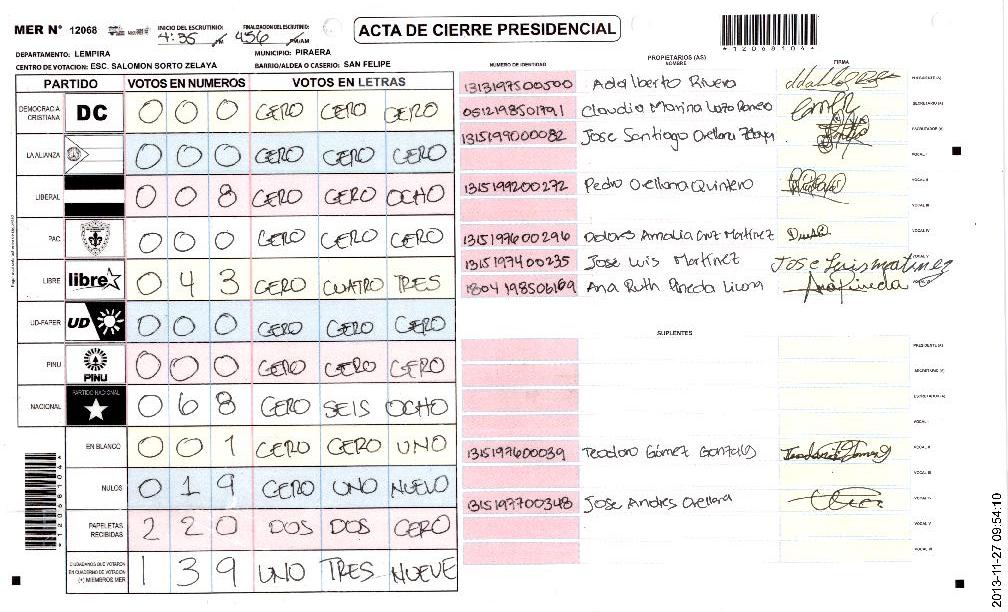 MER N° 12068
INICIO DEL ESCRUTINIO: 4:35 PM
FINALIZACION DEL ESCRUTINIO: 456 PM/AM
ACTA DE CIERRE PRESIDENCIAL
*12068104*
DEPARTAMENTO: LEMPIRA
MUNICIPIO: PIRAERA
CENTRO DE VOTACION: ESC. SALOMON SORTO ZELAYA
BARRIO/ALDEA O CASERIO: SAN FELIPE
PARTIDO VOTOS EN NUMEROS VOTOS EN LETRAS
DEMOCRACIA CRISTIANA DC 0 0 0 CERO CERO CERO
LA ALIANZA 0 0 0 CERO CERO CERO
LIBERAL 0 0 8 CERO CERO OCHO
PAC 0 0 0 CERO CERO CERO
LIBRE libre 0 4 3 CERO CUATRO TRES
UD-FAPER UD 0 0 0 CERO CERO CERO
PINU PINU 0 0 0 CERO CERO CERO
NACIONAL PARTIDO NACIONAL 0 6 8 CERO SEIS OCHO
EN BLANCO 0 0 1 CERO CERO UNO
NULOS 0 1 9 CERO UNO NUEVO
PAPELETAS RECIBIDAS 2 2 0 DOS DOS CERO
CIUDADANOS QUE VOTARON EN CUADERNO DE VOTACION (+) MIEMBROS MER 1 3 9 UNO TRES NUEVE
NUMERO DE IDENTIDAD PROPIETARIOS (AS) NOMBRE FIRMA
1313197500500 Adalberto Rivera PRESIDENTE (A)
0512198501791 Claudia Marina SECRETARIO (A)
1315199000082 Jose Santiago Orellana Zelaya ESCRUTADOR (A)
VOCAL I
1315199200272 Pedro Orellana Quintero VOCAL II
VOCAL III
1315197600296 Dolores Amalia Cruz Martinez VOCAL IV
1315197400235 Jose Luis Martinez Jose Luis martinez VOCAL V
1804198506169 Ana Ruth Pineda Ana Pineda VOCAL VI
SUPLENTES
PRESIDENTE (A)
SECRETARIO (A)
ESCRUTADOR (A)
VOCAL I
1315197600039 Teodoro Gómez Gonzales VOCAL II
VOCAL III
1315197700348 Jose Andres Orellana VOCAL IV
VOCAL V
VOCAL VI
2013-11-27 09:54:10